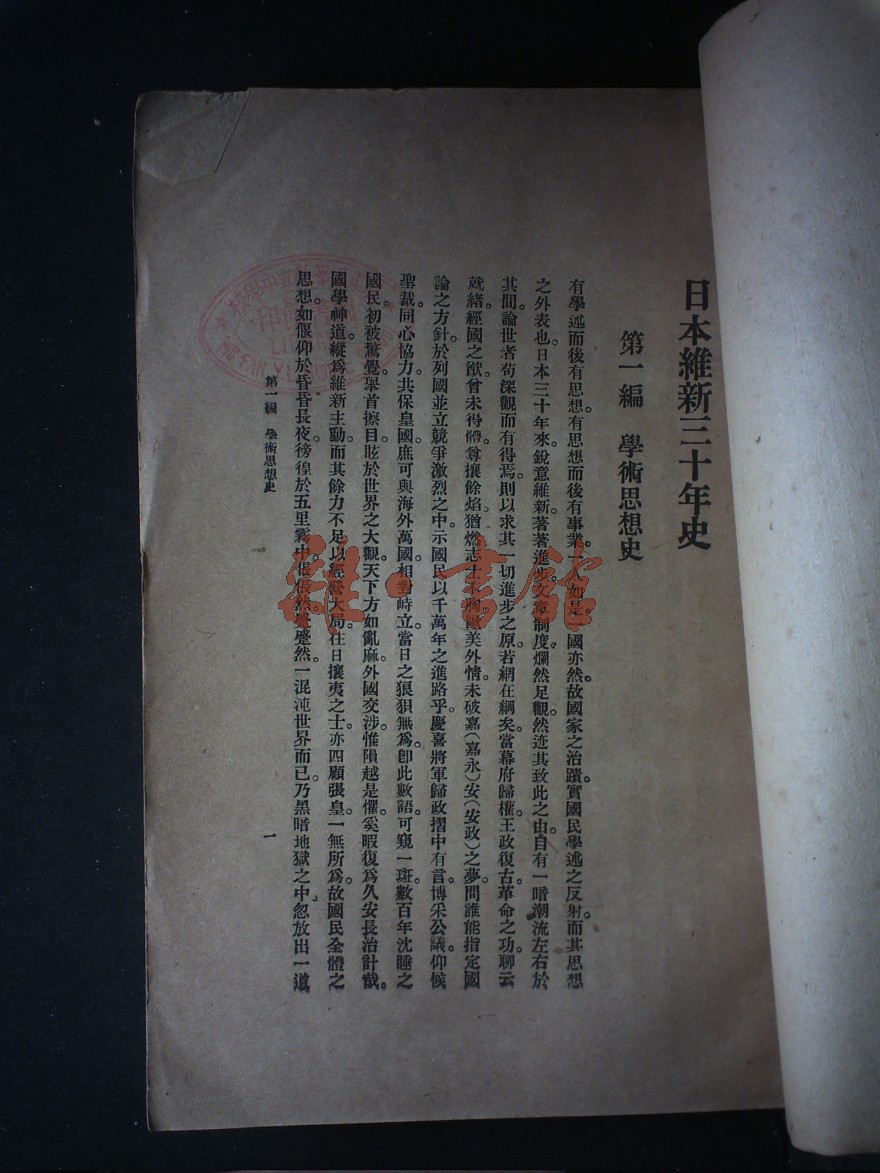 日本維新三十年史
第一編　學術思想史
有學述而後有思想。有思想而後有事業。一人如是。一國亦然。故國家之治蹟。實國民學述之反射。而其思想
之外表也。日本三十年來。銳意維新。著著進步。文章制度。爛然足觀。然迹其致此之由。自有一暗潮流左右於
其間。論世者苟深觀而有得焉。則以求其一切進步之原。若網在綱矣。當幕府歸權。王政復古。革命之功。聊云
就緒。經國之猷。曾未得軆。尊攘餘焰。猶燃志士不胸。歐美外情。未破嘉（嘉永）安（安政）之夢。問誰能指定國
論之方針。於列國並立競爭激烈之中。示國民以千萬年之進路乎。慶喜將軍歸政摺中有言。博采公議。仰候
聖裁。同心協力。共保皇國。庶可與海外萬國。相對峙立。當日之狼狽無爲。卽此數語。可窺一斑。數百年沈睡之
國民。初被驚覺。舉首擦目。眩於世界之大觀。天下方如亂麻。外國交涉。惟隕越是懼。奚暇復爲久安長治計哉。
國學神道。縱爲維新主動。而其餘力不足以經營大局。往日攘夷之士。亦四顧張皇。一無所爲。故國民全體之
思想。如偃仰於昏昏長夜。徬徨於五里霧中。倀倀然。蹙蹙然。一混沌世界而已。乃黑暗地獄之中。忽放出一道
第一編　學術思想史
一
雜·書館